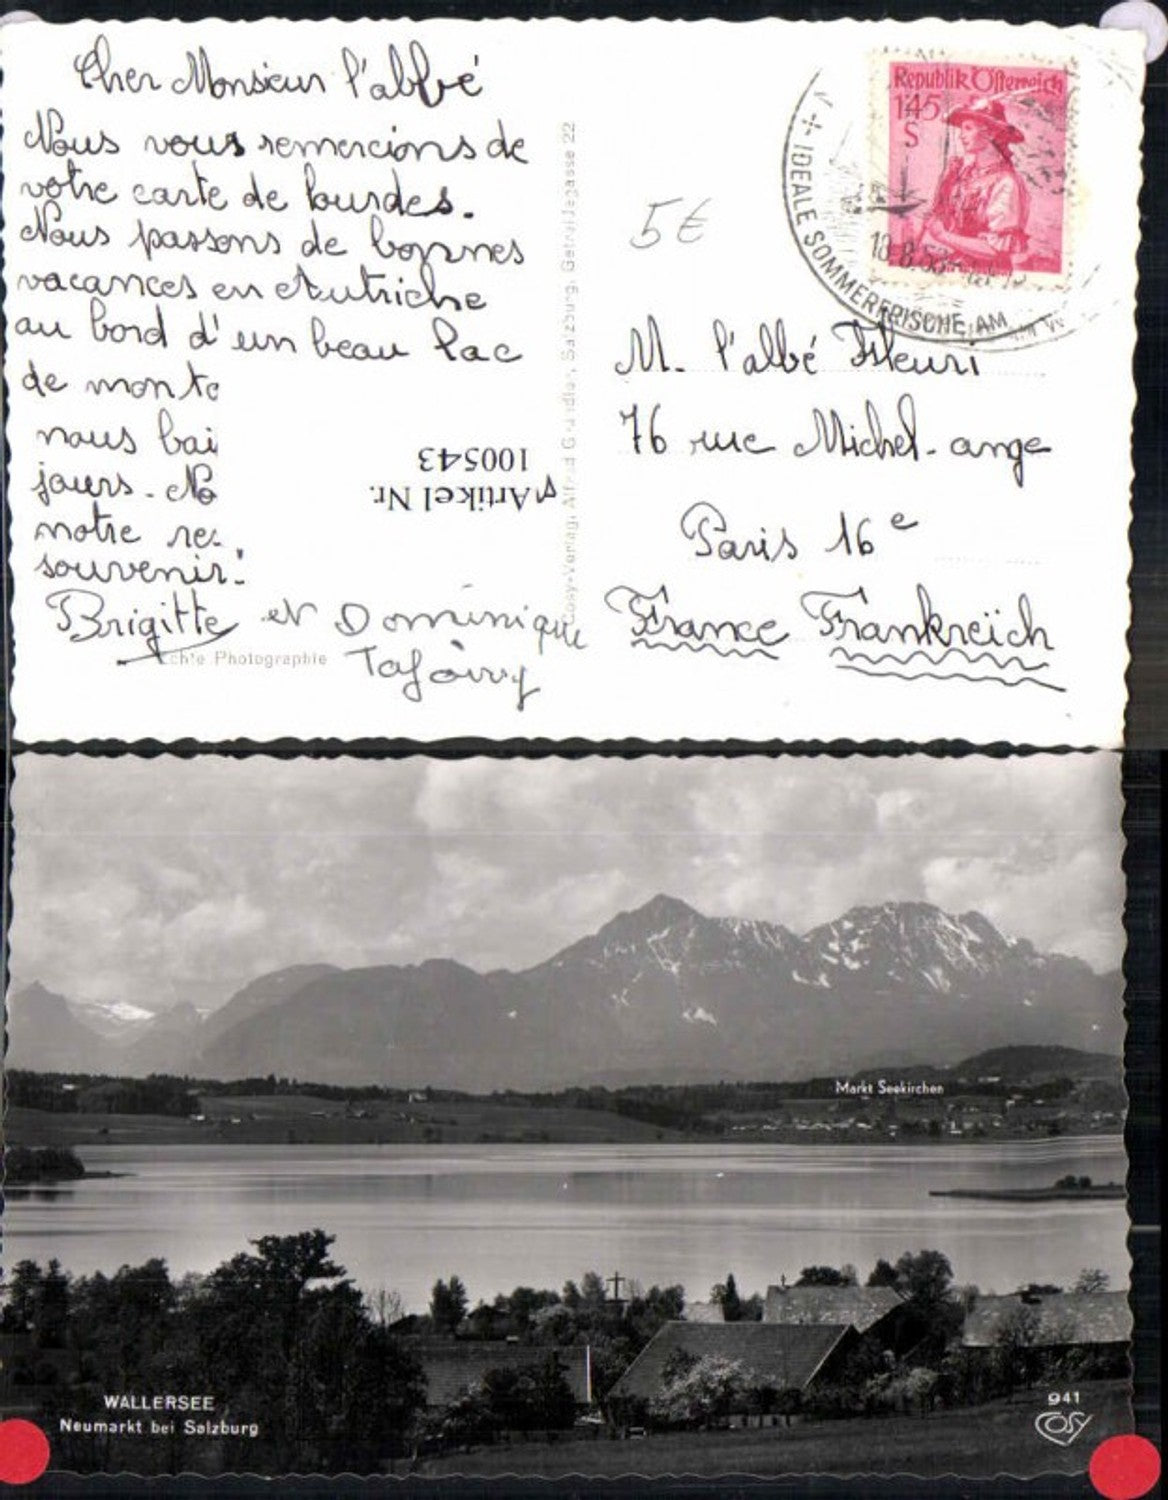 Cher Monsieur l'abbé
Nous vous remercions de
votre carte de Lourdes.
Nous passons de bonnes
vacances en Autriche
au bord d'un beau lac
de monta
nous bai
jours. No
notre re
souvenir.
Brigitte et Dominique
Echte Photographie
Artikel Nr.
100543
Cosy-Verlag, Alfred Gründler, Salzburg, Getreidegasse 22
5€
Republik Österreich
145
S
+ IDEALE SOMMERFRISCHE AM
18.8.53
M. l'abbé Fleuri
76 rue Michel-ange
Paris 16e
France Frankreïch
Markt Seekirchen
WALLERSEE
Neumarkt bei Salzburg
941
COSY